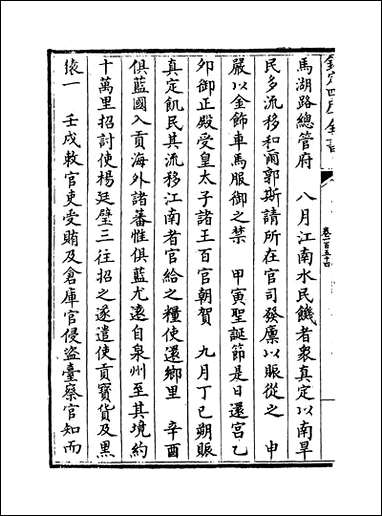 欽定四庫全書
卷一百五十四
馬湖路總管府　八月江南水民饑者衆真定以南旱
民多流移和爾郭斯請所在官司發廩以賑從之　申
嚴以金飾車馬服御之禁　甲寅聖誕節是日還宫乙
夘御正殿受皇太子諸王百官朝賀　九月丁巳朔賑
真定飢民其流移江南者官給之糧使還鄉里　辛酉
俱藍國入貢海外諸蕃惟俱藍尤遠自泉州至其境約
十萬里招討使楊廷璧三往招之遂遣使貢寶貨及黑
猿一　壬戌敕官吏受賄及倉庫官侵盜臺察官知而